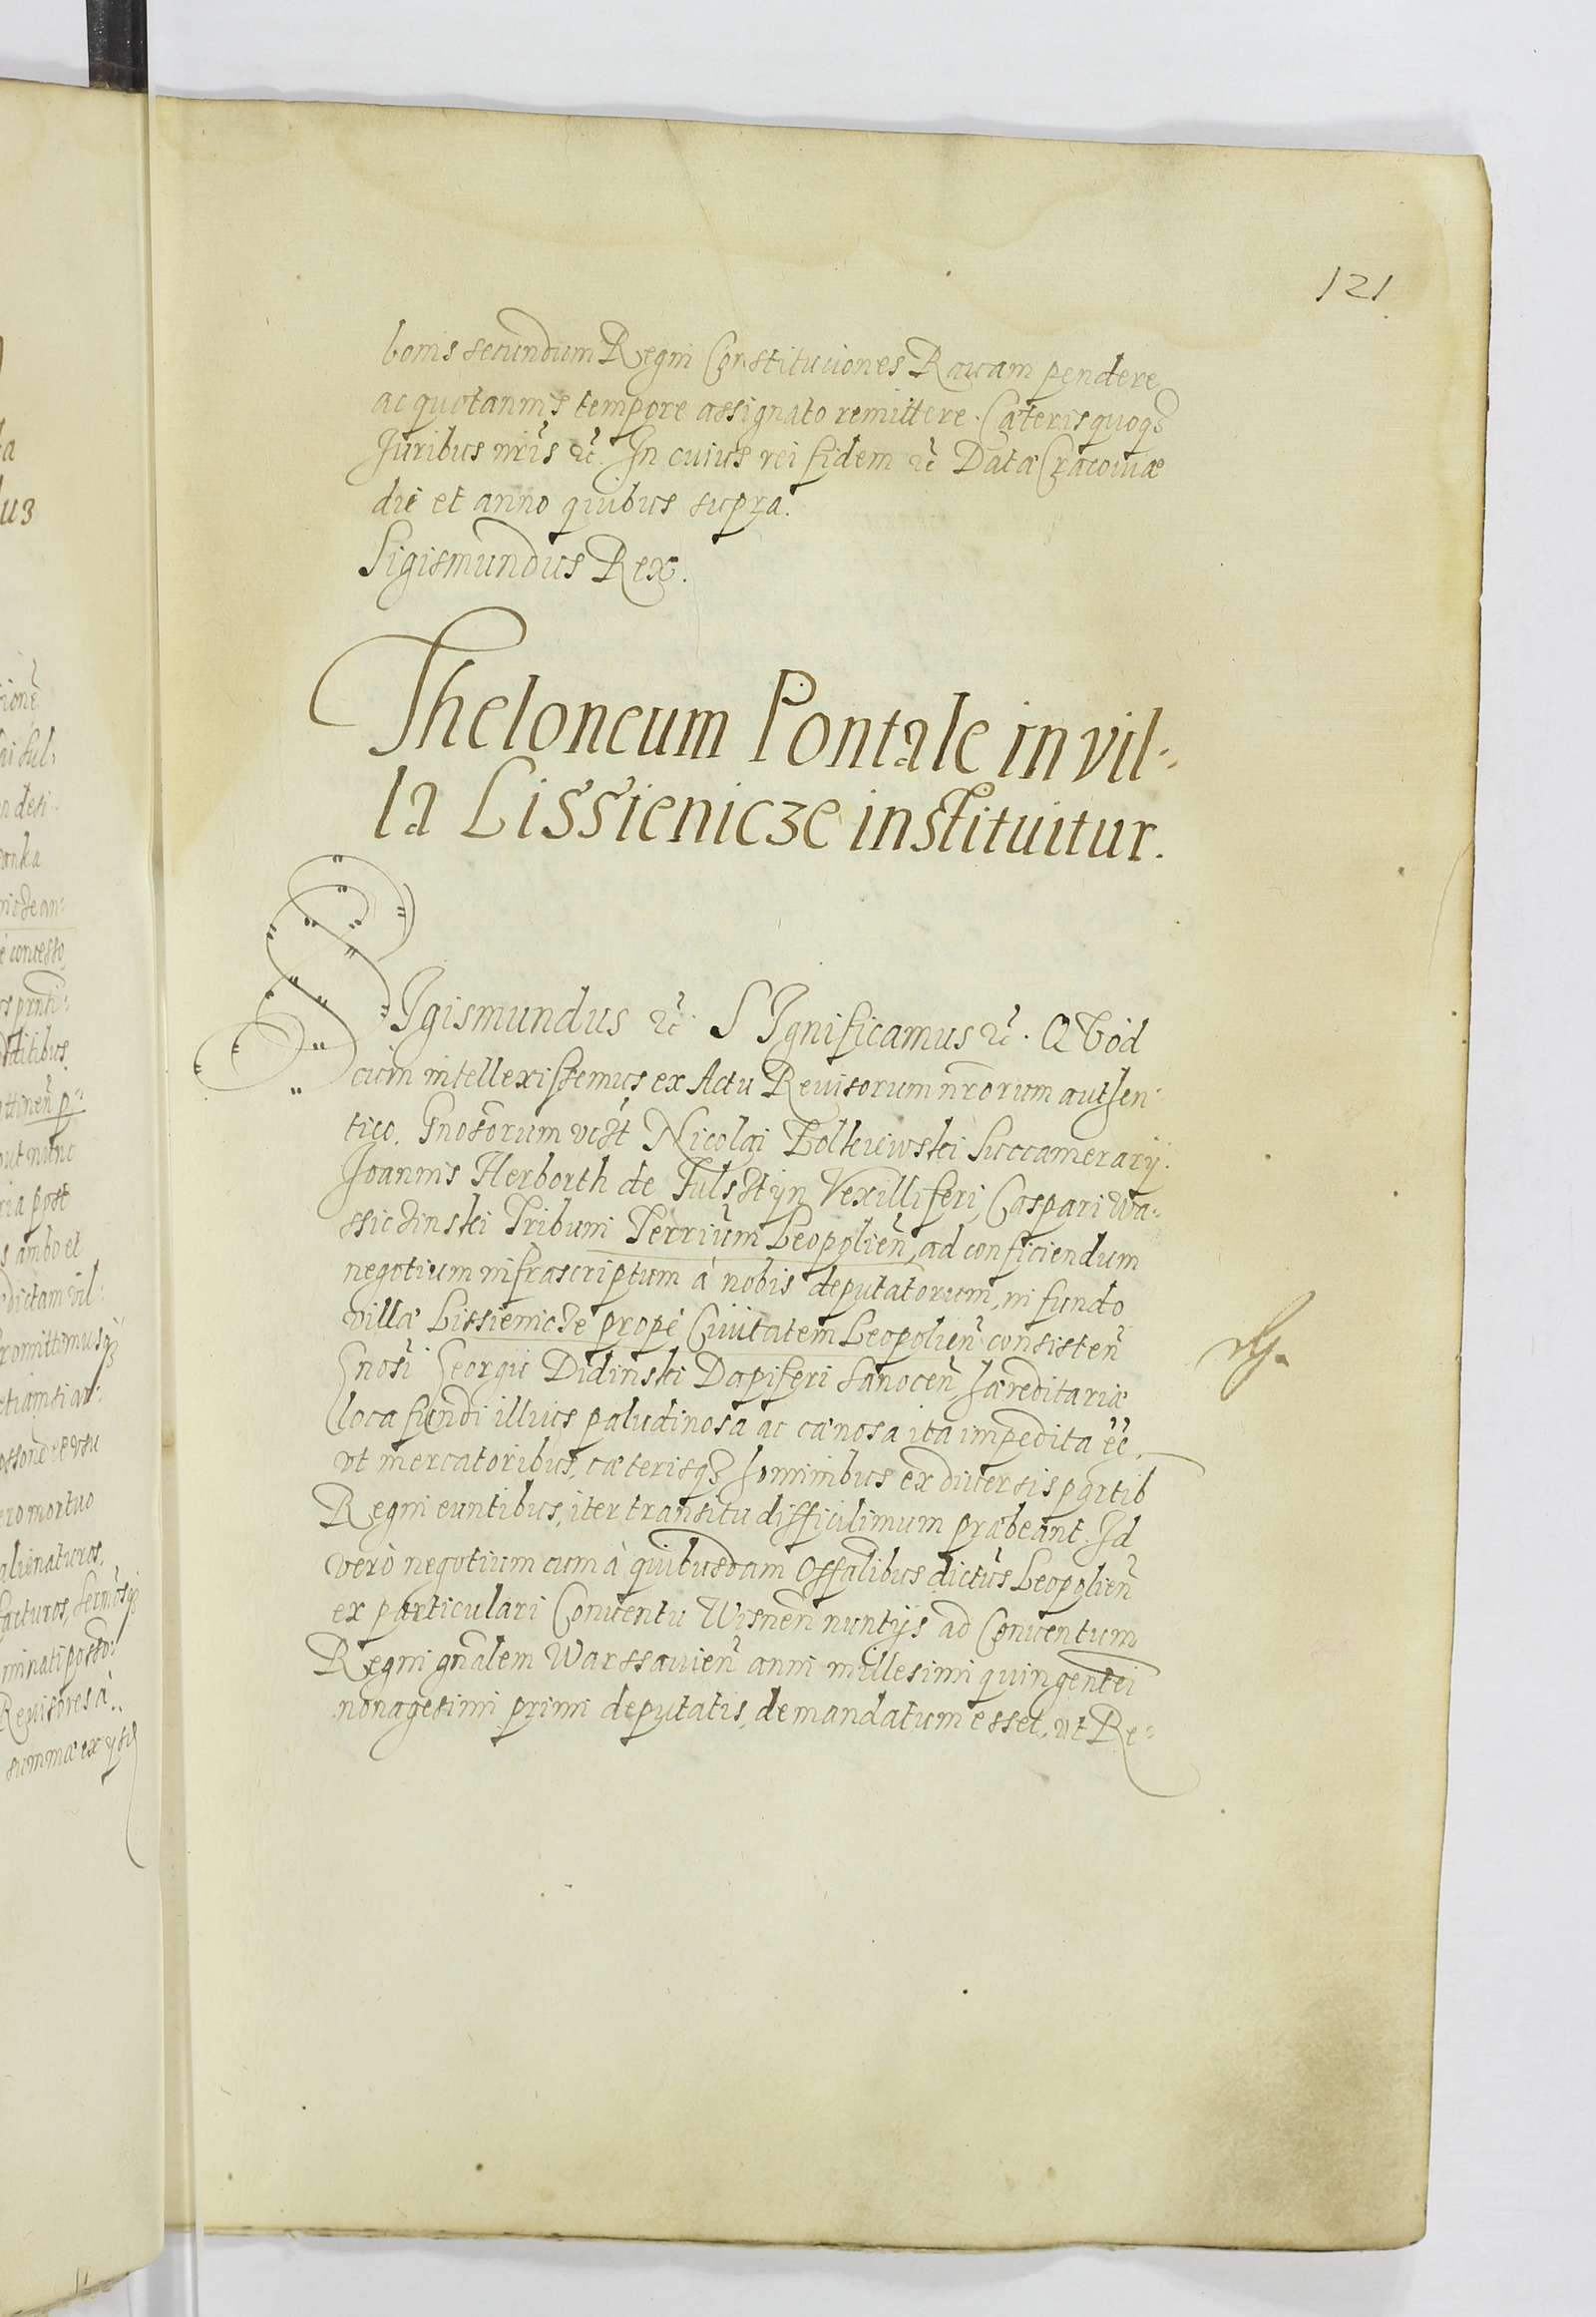 121
bonis secundum Regni Constituciones Rauam pendere
ac quotannis tempore assignato remittere. Cæterisquoqȝ
Juribus nr̃is etc̃. In cuius rei fidem etc̃ Datæ Cracouiæ
die et anno quibus supra.
Sigismundus Rex.
Theloneum Pontale in vil-
la Lissienicze instituitur.
SIgismundus etc̃. SIgnificamus etc̃. QVod
cum intellexissemus ex Actu Reuisorum nr̃orum authen-
tico. Gnosorum vcźt Nicolai Zolkiewski Succamerarij.
Joannis Herborth de Fulsztijn Vexilliferi, Caspari Wa-
ssiczinski Tribuni Terrarum Leopolien̄, ad conficiendum
negotium infrascriptum à nobis deputatorum, in fundo
villæ Lissienicze propè Ciuitatem Leopolien̄ consisten̄
Gnosi Georgii Didinski Dapiferi Sanocen̄ hæreditariæ
loca fundi illius paludinosa ac cænosa ita impedita ẽẽ,
vt mercatoribus, cæterisqȝ hominibus ex diuersis partib
Regni euntibus, iter transitu difficilimum præbeant. Id
verò negotium cum à quibusdam Offalibus dictus Leopolien̄
ex particulari Conuentu Wisnen̄ nuntijs ad Conuentum
Regni gn̄alem Warssauien̄ anni millesimi quingentei
nonagesimi primi deputatis, demandatum esset, vt Re-